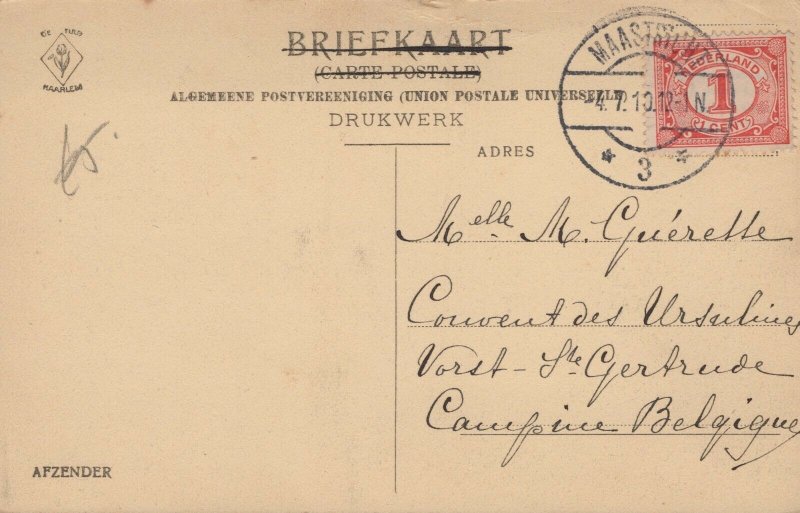 DE TULP
HAARLEM
BRIEFKAART
(CARTE POSTALE)
ALGEMEENE POSTVEREENIGING (UNION POSTALE UNIVERSELLE)
DRUKWERK
MAASTRICHT
-4.7.10.12-1N.
* 3 *
NEDERLAND
1
1 CENT
ADRES
Melle M. Guérette
Couvent des Ursulines
Vorst - Ste Gertrude
Campine Belgique
AFZENDER